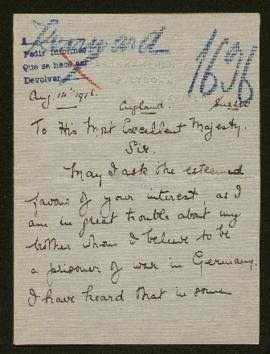 A
Kennard
Pedir informes
Que se hace ser
Devolver
1636
Aug. 14th 1916.
England. Sussex
To His Most Excellent Majesty.
Sir.
May I ask the esteemed
favour of your interest, as I
am in great trouble about my
brother whom I believe to be
a prisoner of war in Germany.
I have heard that in some